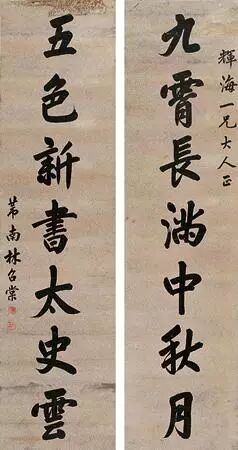 輝海一兄大人正
九霄長満中秋月
五色新書太史雲
芾南林召棠